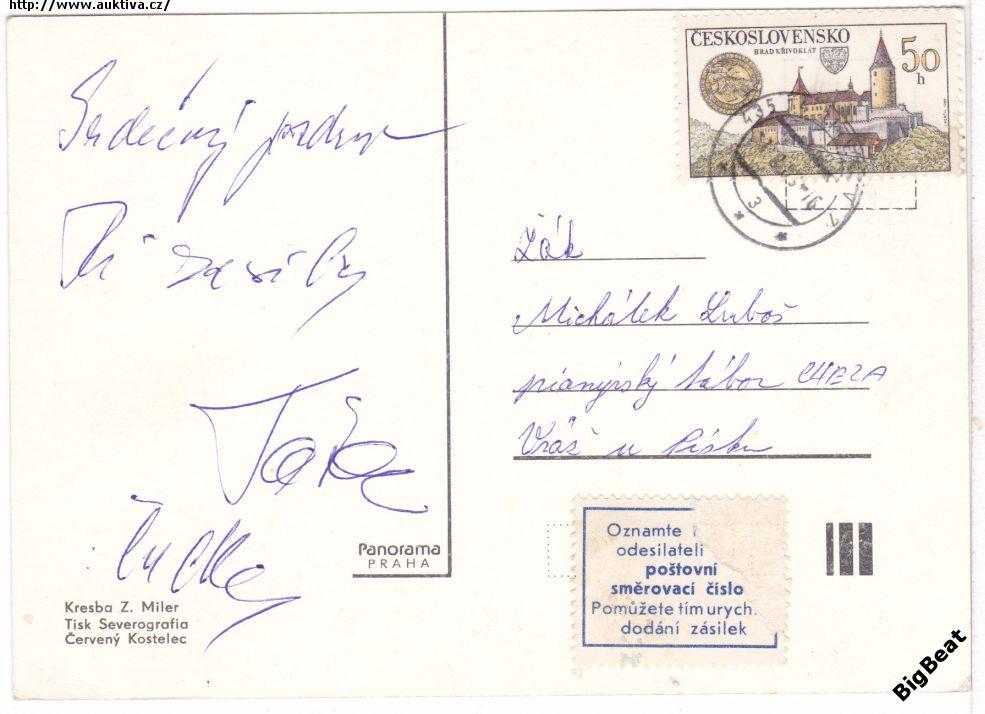 http://www.auktiva.cz/
Srdečný pozdrav
Ti
Kresba Z. Miler
Tisk Severografia
Červený Kostelec
Panorama
PRAHA
ČESKOSLOVENSKO
HRAD KŘIVOKLÁT
50
h
435
Žák
Michálek Luboš
pionýrský tábor CHEZA
Vráž u Písku
Oznamte
odesilateli
poštovní
směrovací číslo
Pomůžete tím urych.
dodání zásilek
BigBeat